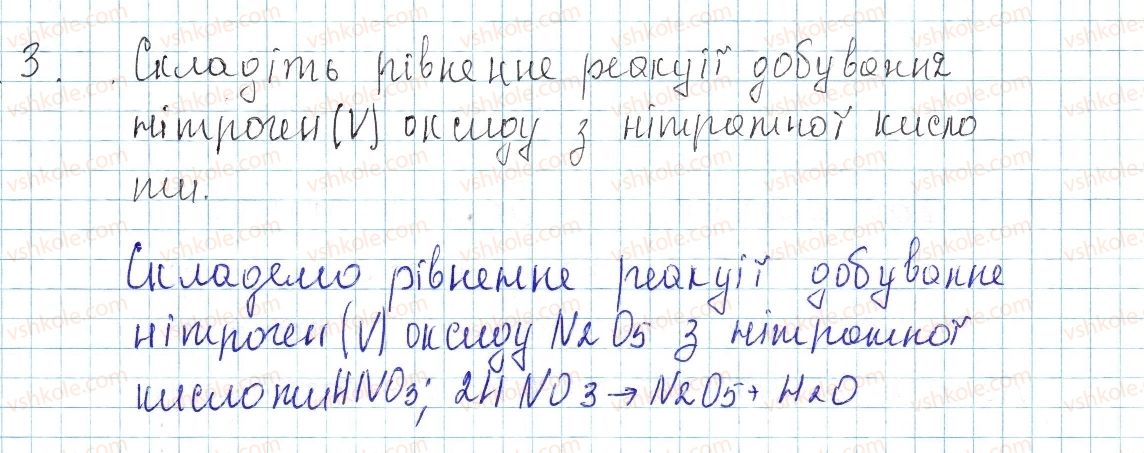 3. Складіть рівненне реакції добування
нітроген(V) оксиду з нітратної кисло
ти.
Складемо рівненне реакції добуванне
нітроген(V) оксиду N2O5 з нітратної
кислоти HNO3; 2HNO3→N2O5+H2O